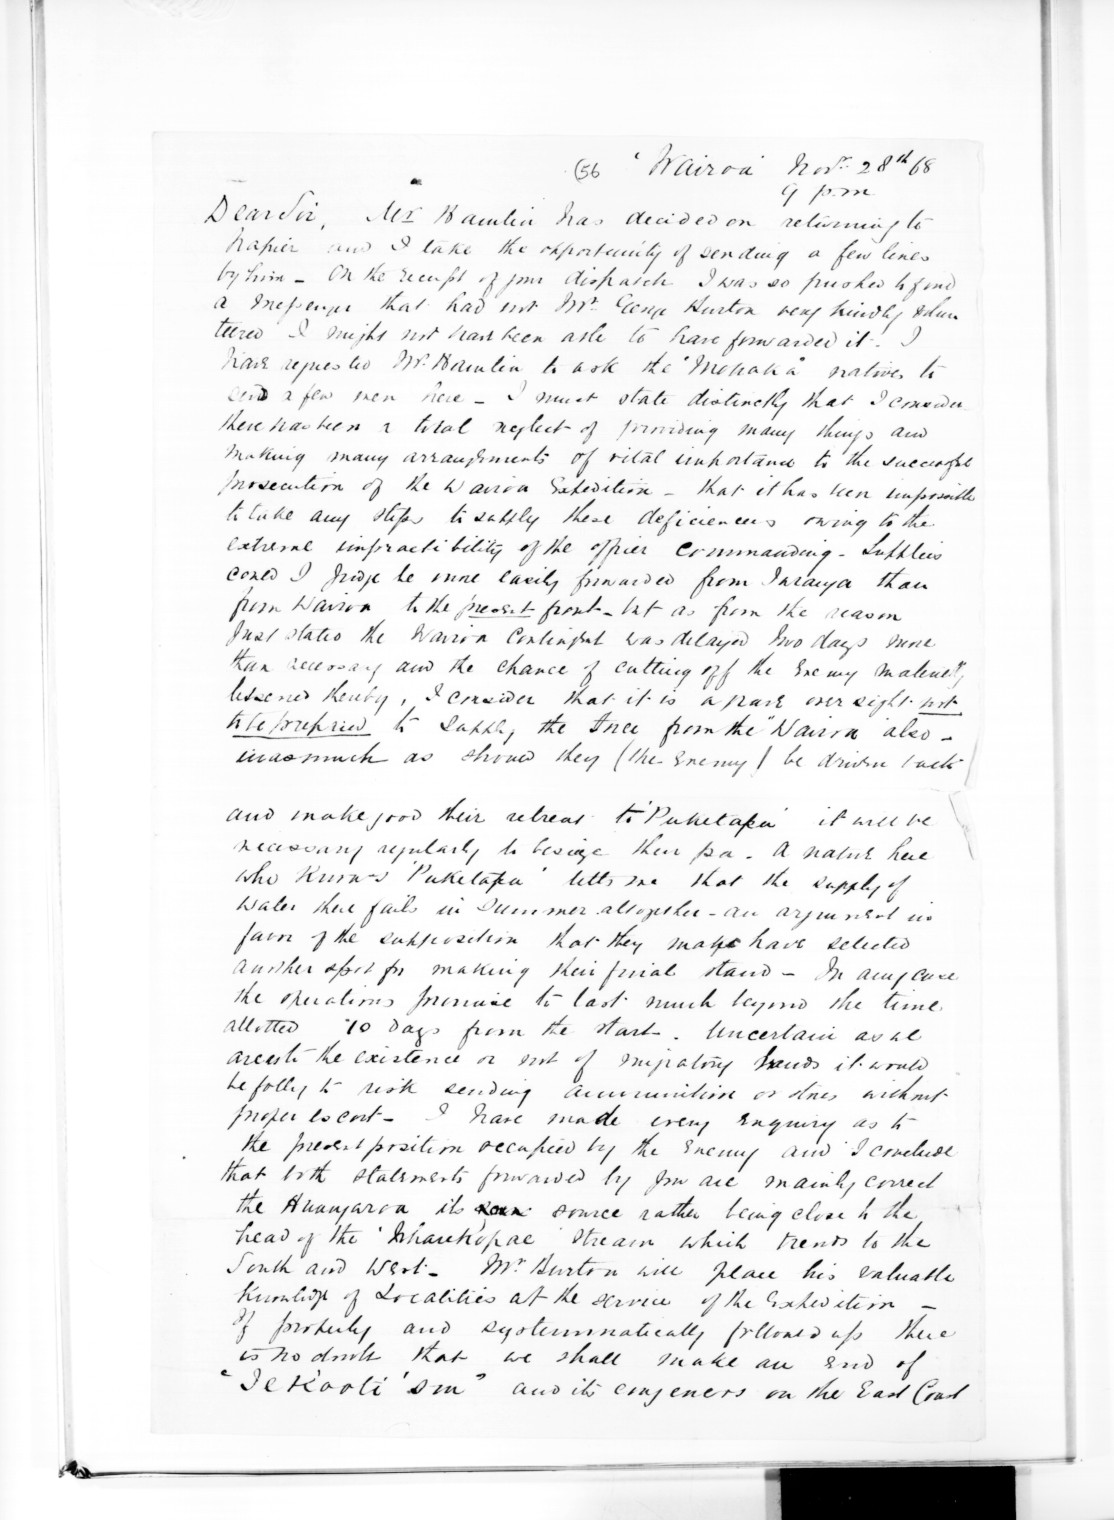 (56 'Wairoa' Novr. 28th/68
9 p.m
Dear Sir, Mr Hamlin has decided on returning to
Napier and I take the opportunity of sending a few lines
by him - On the receipt of your dispatch I was so pushed to find
a messenger that had not Mr. George Burton very kindly volun
teered I might not have been able to have forwarded it. I
have requested Mr. Hamlin to ask the "Mohaka" natives to
send a few men here - I must state distinctly that I consider
there has been a total neglect of providing many things and
making many arrangements of vital importance to the successful
prosecution of the Wairoa Expedition - that it has been impossible
to take any steps to supply these deficiencies owing to the
extreme impractibility of the officer commanding - Supplies
could I judge be more easily forwarded from Turanga than
from Wairoa to the present front - but as from the reason
just stated the Wairoa Contingent was delayed two days more
than necessary and the chance of cutting off the Enemy materially
lessened thereby, I consider that it is a grave oversight not
to be prepared to supply the Force from the "Wairoa" also -
inasmuch as should they (the Enemy) be driven back
and make good their retreat to 'Puketapu' it will be
necessary regularly to besiege their pa. A native here
who knows 'Puketapu' tells me that the supply of
water there fails in Summer altogether - an argument in
favor of the supposition that they may have selected
another spot for making their final stand - In any case
the operations promise to last much beyond the time
allotted '10 days from the start. Uncertain as we
are as to the existence or not of migratory bands it would
be folly to risk sending ammunition or stores without
proper escort - I have made every enquiry as to
the present position occupied by the Enemy and I conclude
that both statements forwarded by you are mainly correct
the Huangaroa its source rather being close to the
head of the 'Wharekopae' stream which trends to the
South and West - Mr. Burton will place his valuable
Knowledge of Localities at the service of the Expedition -
If properly and systemmatically followed up there
is no doubt that we shall make an end of
"Te Kooti'sm" and its congeners on the East Coast